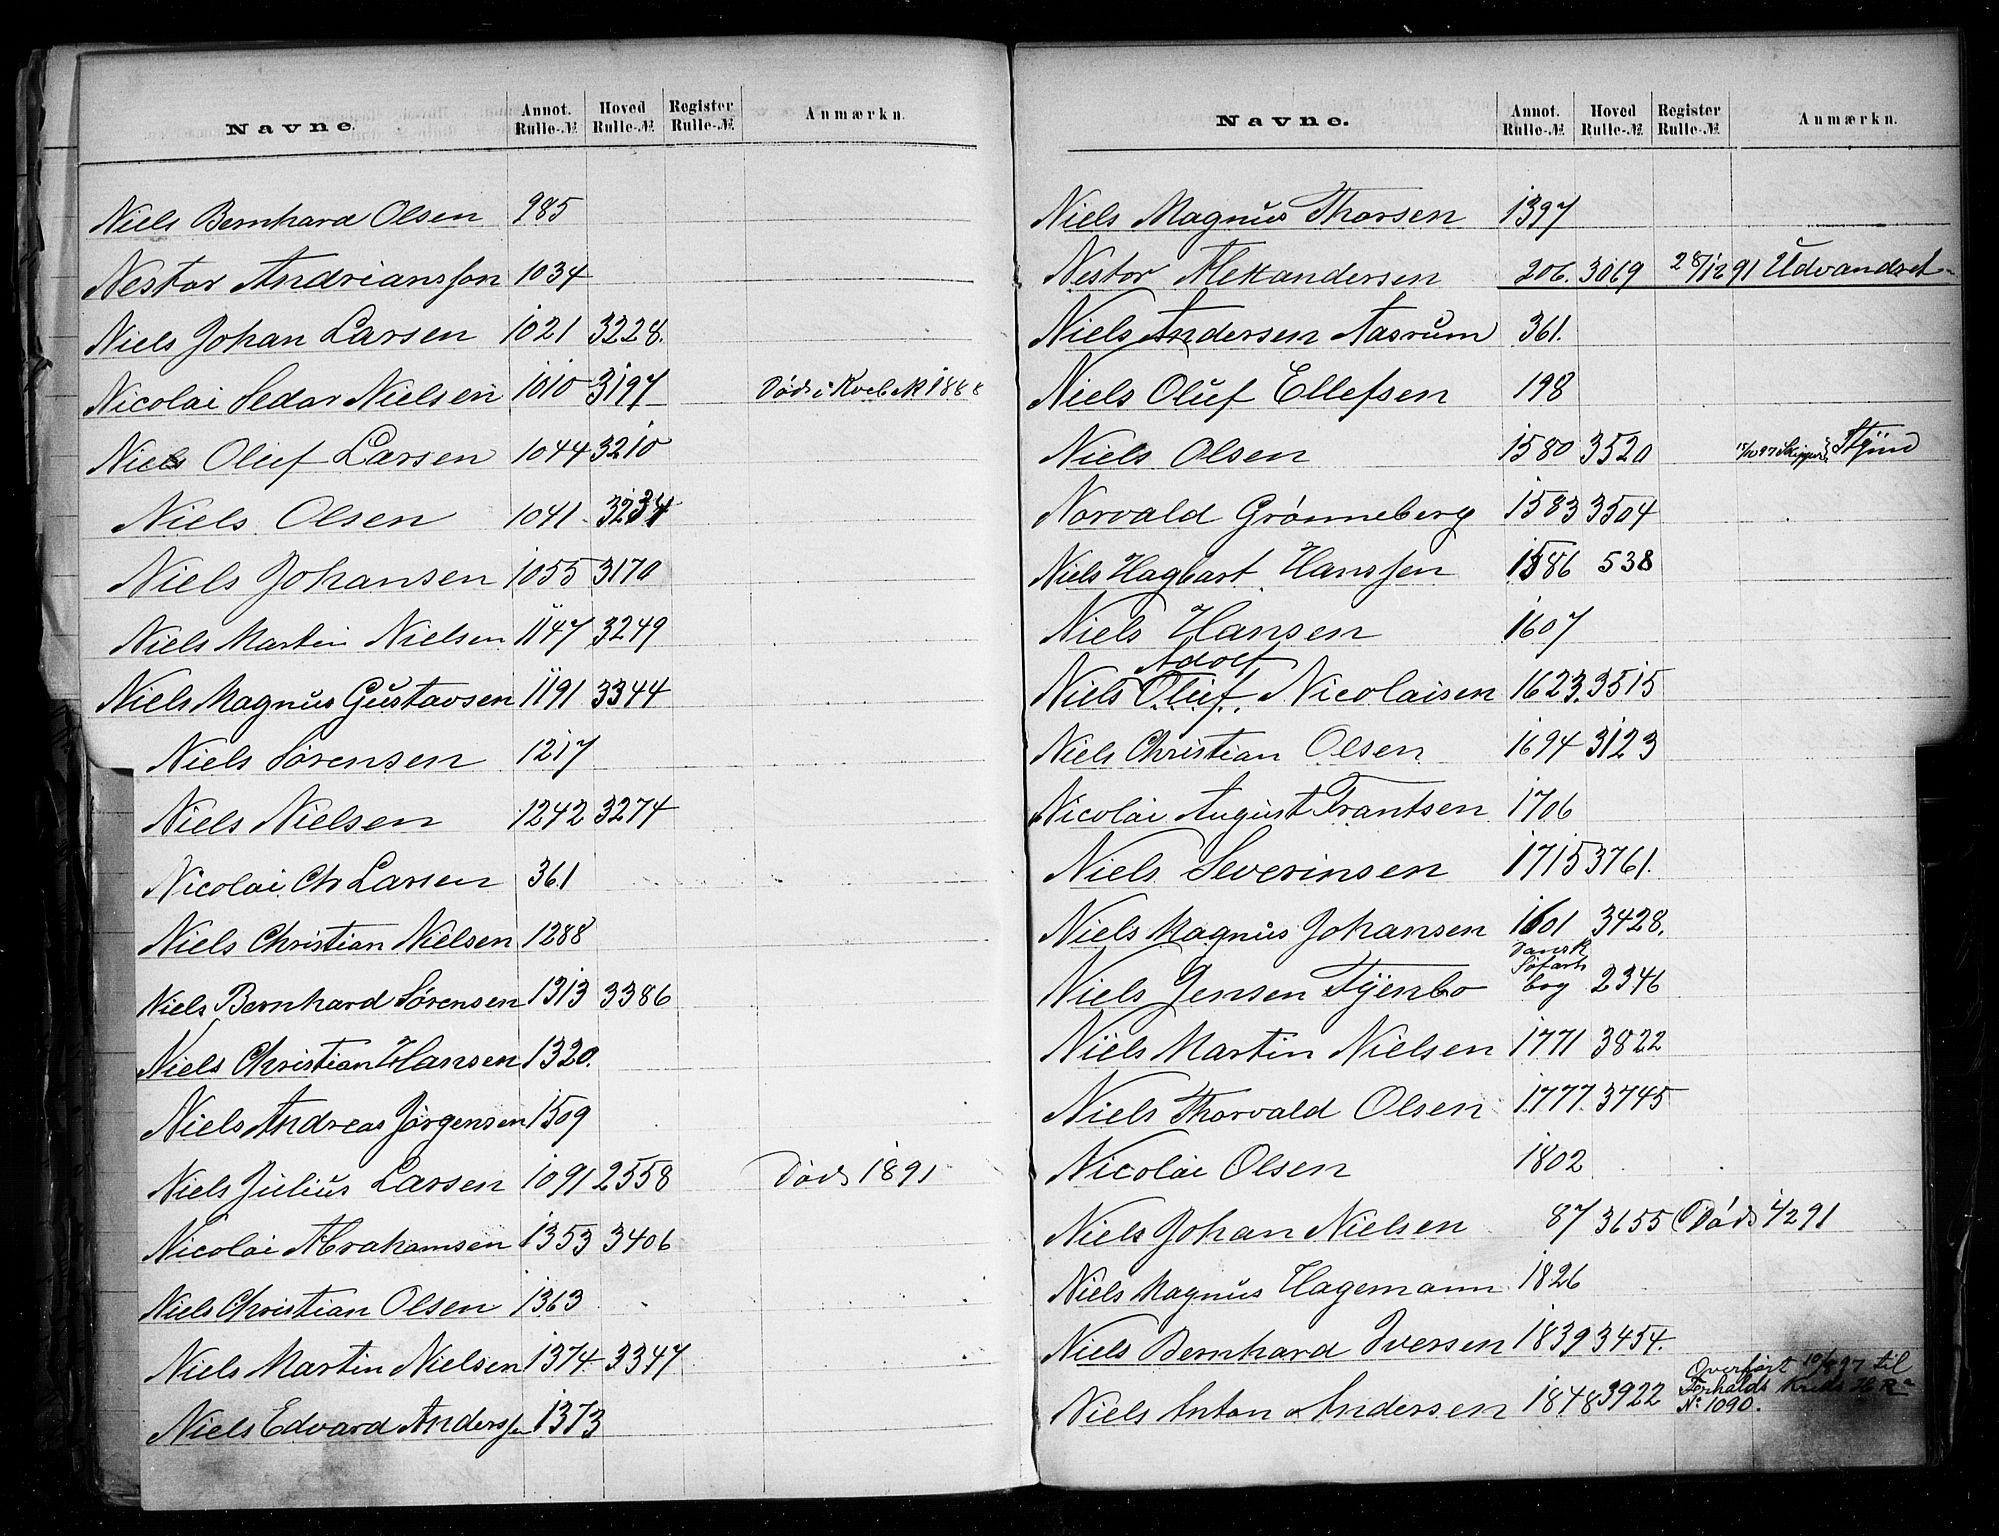 Navne. Annot. Rulle-№ Hoved Rulle-№ Register Rulle-№. Anmærkn.
Niels Bernhard Olsen 985
Nestor Andrianssen 1034
Niels Johan Larsen 1021 3228.
Nicolai Sedar Nielsen 1010 3197 Død i 1888
Niels Oluf Larsen 1044 3210
Niels Olsen 1041 3234
Niels Johansen 1055 3170
Niels Martin Nielsen 1147 3249
Niels Magnus Gustavsen 1191 3344
Niels Sørensen 1217
Niels Nielsen 1242 3274
Nicolai Chr Larsen 361
Niels Christian Nielsen 1288
Niels Bernhard Sørensen 1313 3386
Niels Christian Hansen 1320.
Niels Andreas Jørgensen 1509
Niels Julius Larsen 1091 2558 Død 1891
Nicolai Abrahamsen 1353 3406
Niels Christian Olsen 1363
Niels Martin Nielsen 1374 3347
Niels Edvard Anderssen 1373
Navne. Annot. Rulle-№ Hoved Rulle-№ Register Rulle-№ Anmærkn.
Niels Magnus Thorsen 1397
Nestor Alexandersen 206. 3069 28/12 91 Udvandret
Niels Andersen Aasrum 361.
Niels Oluf Ellefsen 198
Niels Olsen 1580 3520 Skipper
Norvald Grønneberg 1583 3504
Niels Hagbart Hanssen 1586 538
Niels Hansen 1607
Adolf
Niels Oluf Nicolaisen 1623. 3515
Niels Christian Olsen 1694 3123
Nicolai August Frantsen 1706
Niels Severinsen 1715 3761.
Niels Magnus Johansen 1601 3428.
Dansk
Søfarts
Niels Jensen Fyenbo bog 2346
Niels Martin Nielsen 1771 3822
Niels Thorvald Olsen 1777. 3745
Nicolai Olsen 1802
Niels Johan Nielsen 87 3655 Død 1/2 91
Niels Magnus Hagemann 1826
Niels Bernhard Iversen 1839 3454.
Overført 10/8 97 til
Forholds Kreds
Niels Anton Andersen 1848 3922 № 1090.